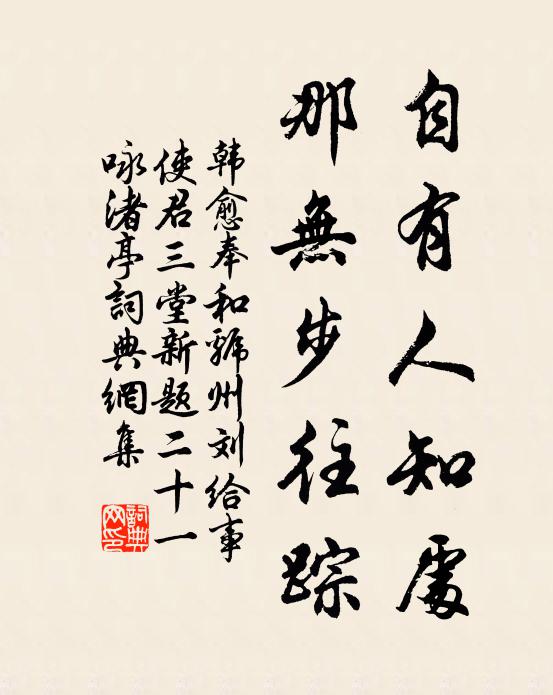 自有人知處
那無步往踪
韩愈奉和虢州刘给事
使君三堂新题二十一
咏渚亭詞典網集
詞典
网印